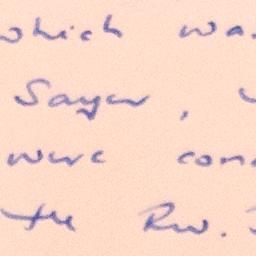 which was
Sayer,
were con
the Rev.